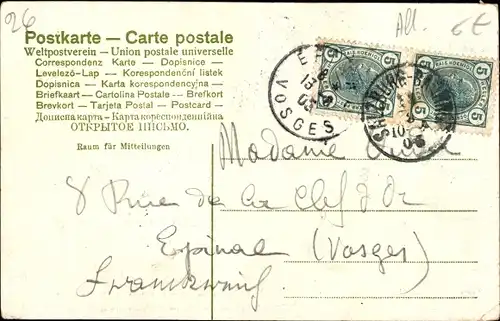 26
All.
6€
Postkarte — Carte postale
Weltpostverein — Union postale universelle
Correspondenz Karte — Dopisnice -
Levelező-Lap — Korespondenční listek
Dopisnica — Karta korespondencyjna -
Briefkaart - Cartolina Postale - Brefkort
Brevkort - Tarjeta Postal - Postcard -
Дописна карта - Карта кореспонденційна
ОТКРЫТОЕ ПИСЬМО.
Raum für Mitteilungen
5 5
5 5
VOSGES
Madame
8 Rue de la Clef d'Or
Epinal (Vosges)